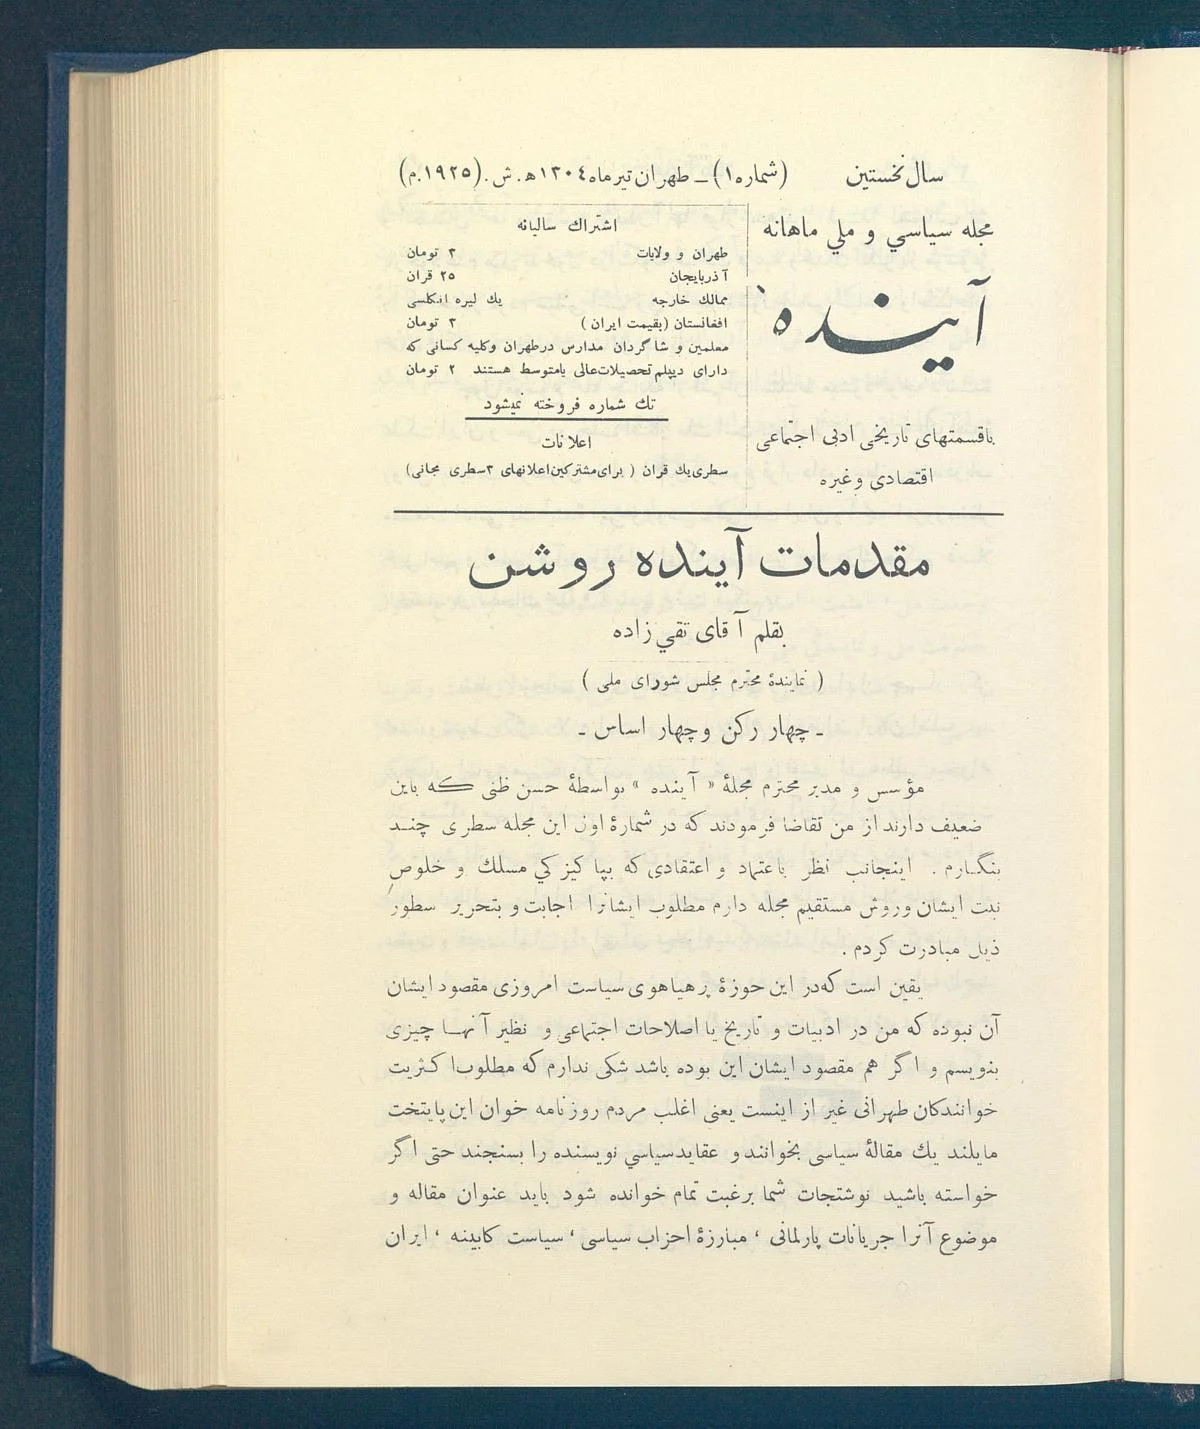 سال نخستین (شماره ۱) ـ طهران تیر ماه ۱۳۰٤ ه‍. ش. (۱۹۲٥ م.)
مجله سیاسي و ملي ماهانه
آینده
باقسمتهای تاریخی ادبی اجتماعی
اقتصادی وغیره
اشتراك سالیانه
طهران و ولایات ۳ تومان
آذربایجان ۲٥ قران
ممالك خارجه يك لیره انگلسی
افغانستان (بقیمت ایران) ۳ تومان
معلمین و شاگردان مدارس درطهران وکلیه کسانی که
دارای دیپلم تحصیلات‌عالی یامتوسط هستند ۲ تومان
تك شماره فروخته نمیشود
اعلانات
سطری‌يك قران ( برای‌مشترکین‌اعلانهای ۳سطری مجانی)
مقدمات آینده روشن
بقلم آقای تقي زاده
( نمایندۀ محترم مجلس شورای ملی )
ـ چهار رکن وچهار اساس ـ
مؤسس و مدیر محترم مجلۀ « آینده » بواسطۀ حسن ظنی که باین
ضعیف دارند از من تقاضا فرمودند که در شمارۀ اول این مجله سطری چند
بنگارم . اینجانب نظر باعتماد و اعتقادی که بپاکیزکي مسلك و خلوص
نیت ایشان وروش مستقیم مجله دارم مطلوب ایشانرا اجابت و بتحریر سطور
ذیل مبادرت کردم .
یقین است که‌در این حوزۀ پرهیاهوی سیاست امروزی مقصود ایشان
آن نبوده که من در ادبیات و تاریخ یا اصلاحات اجتماعی و نظیر آنها چیزی
بنویسم و اگر هم مقصود ایشان این بوده باشد شکی ندارم که مطلوب اکثریت
خوانندکان طهرانی غیر از اینست یعنی اغلب مردم روزنامه خوان این پایتخت
مایلند يك مقالۀ سیاسی بخوانند و عقایدسیاسي نویسنده را بسنجند حتی اگر
خواسته باشید نوشتجات شما برغبت تمام خوانده شود باید عنوان مقاله و
موضوع آنرا جریانات پارلمانی ، مبارزۀ احزاب سیاسی ، سیاست کابینه ، ایران